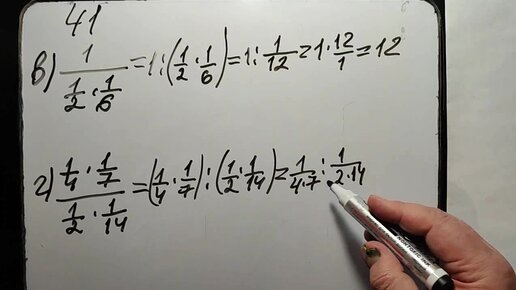 41
в) 1/(1/2 · 1/6) = 1 : (1/2 · 1/6) = 1 : 1/12 = 1 · 12/1 = 12
г) (1/4 · 1/7)/(1/2 · 1/14) = (1/4 · 1/7) : (1/2 · 1/14) = 1/(4·7) : 1/(2·14)